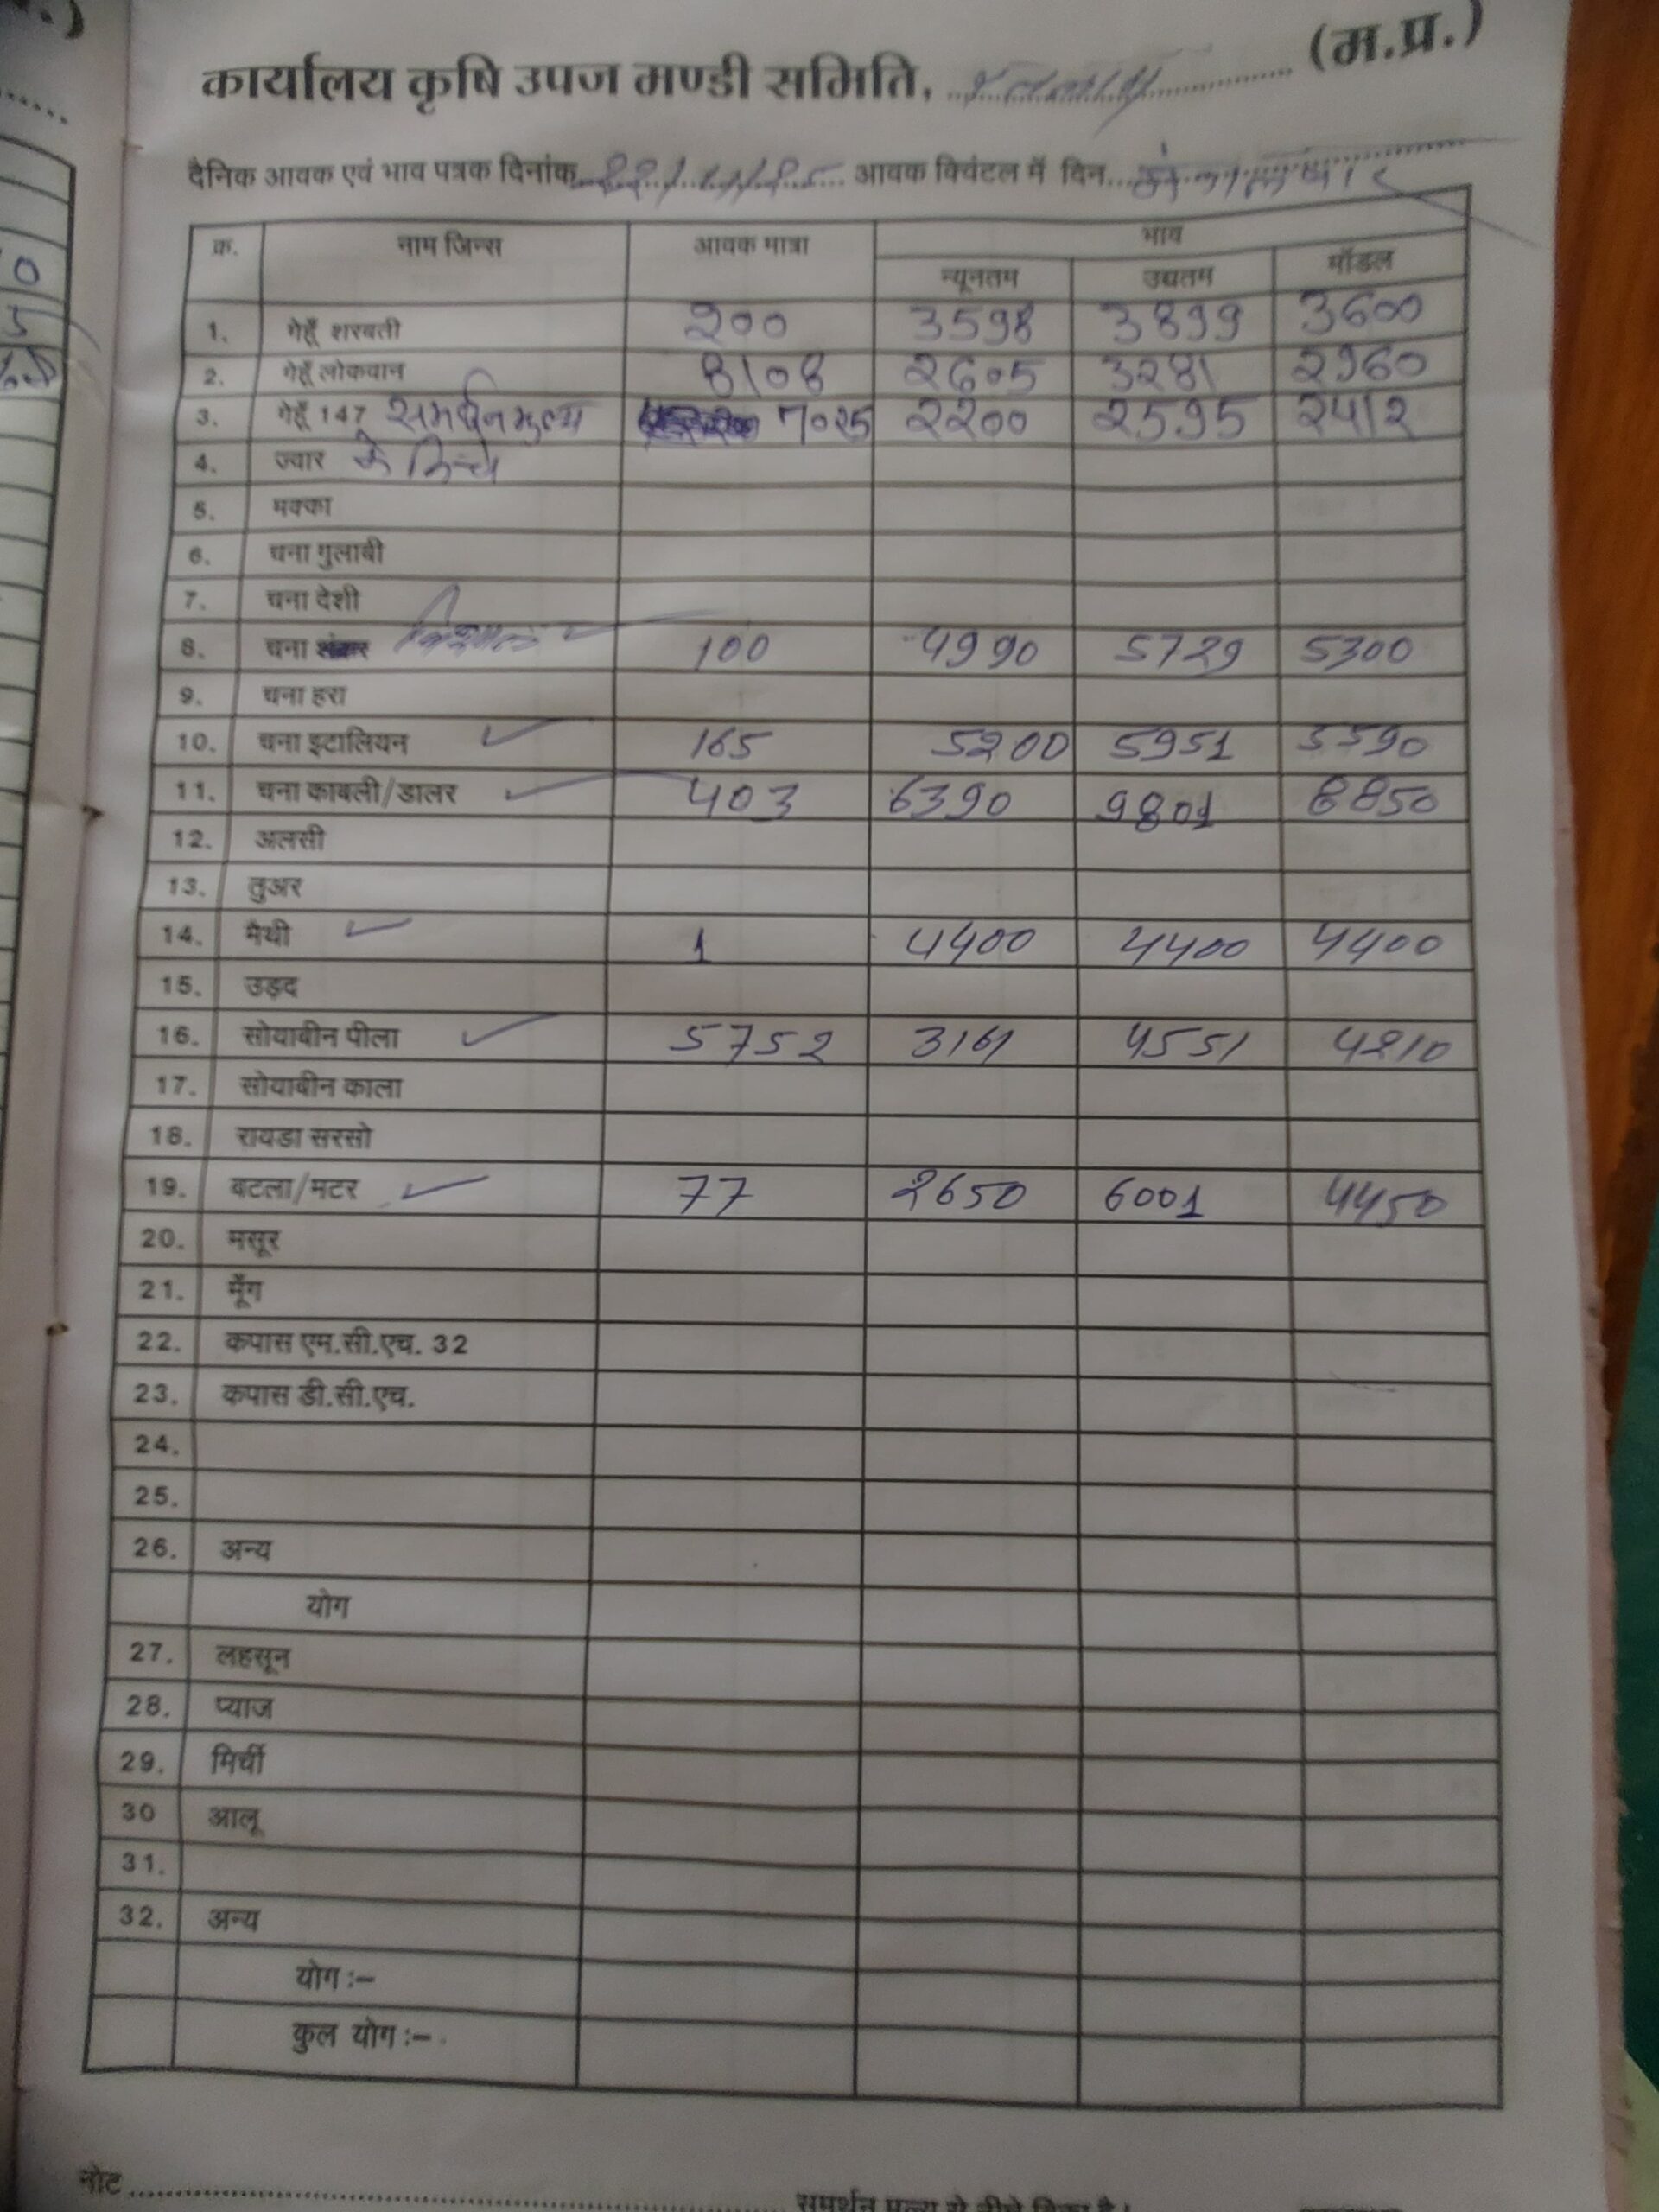 कार्यालय कृषि उपज मण्डी समिति, (म.प्र.)
दैनिक आवक एवं भाव पत्रक दिनांक आवक क्विंटल में दिन
क्र. नाम जिन्स आवक मात्रा भाव
न्यूनतम उच्चतम मॉडल
1. गेहूँ शरबती 200 3598 3899 3600
2. गेहूँ लोकवान 8108 2605 3281 2960
3. गेहूँ 147 समर्थन मुल्य 7025 2200 2595 2412
4. ज्वार के निचे
5. मक्का
6. चना गुलाबी
7. चना देशी
8. चना विशाल 100 4990 5729 5300
9. चना हरा
10. चना इटालियन 165 5200 5951 5590
11. चना काबली/डालर 403 6390 9801 8850
12. अलसी
13. तुअर
14. मैथी 1 4400 4400 4400
15. उड़द
16. सोयाबीन पीला 5752 3161 4551 4210
17. सोयाबीन काला
18. रायडा सरसो
19. बटला/मटर 77 2650 6001 4450
20. मसूर
21. मूँग
22. कपास एम.सी.एच. 32
23. कपास डी.सी.एच.
24.
25.
26. अन्य
योग
27. लहसून
28. प्याज
29. मिर्ची
30 आलू
31.
32. अन्य
योग :-
कुल योग :-
नोट
समर्थन मूल्य से नीचे बिका है।